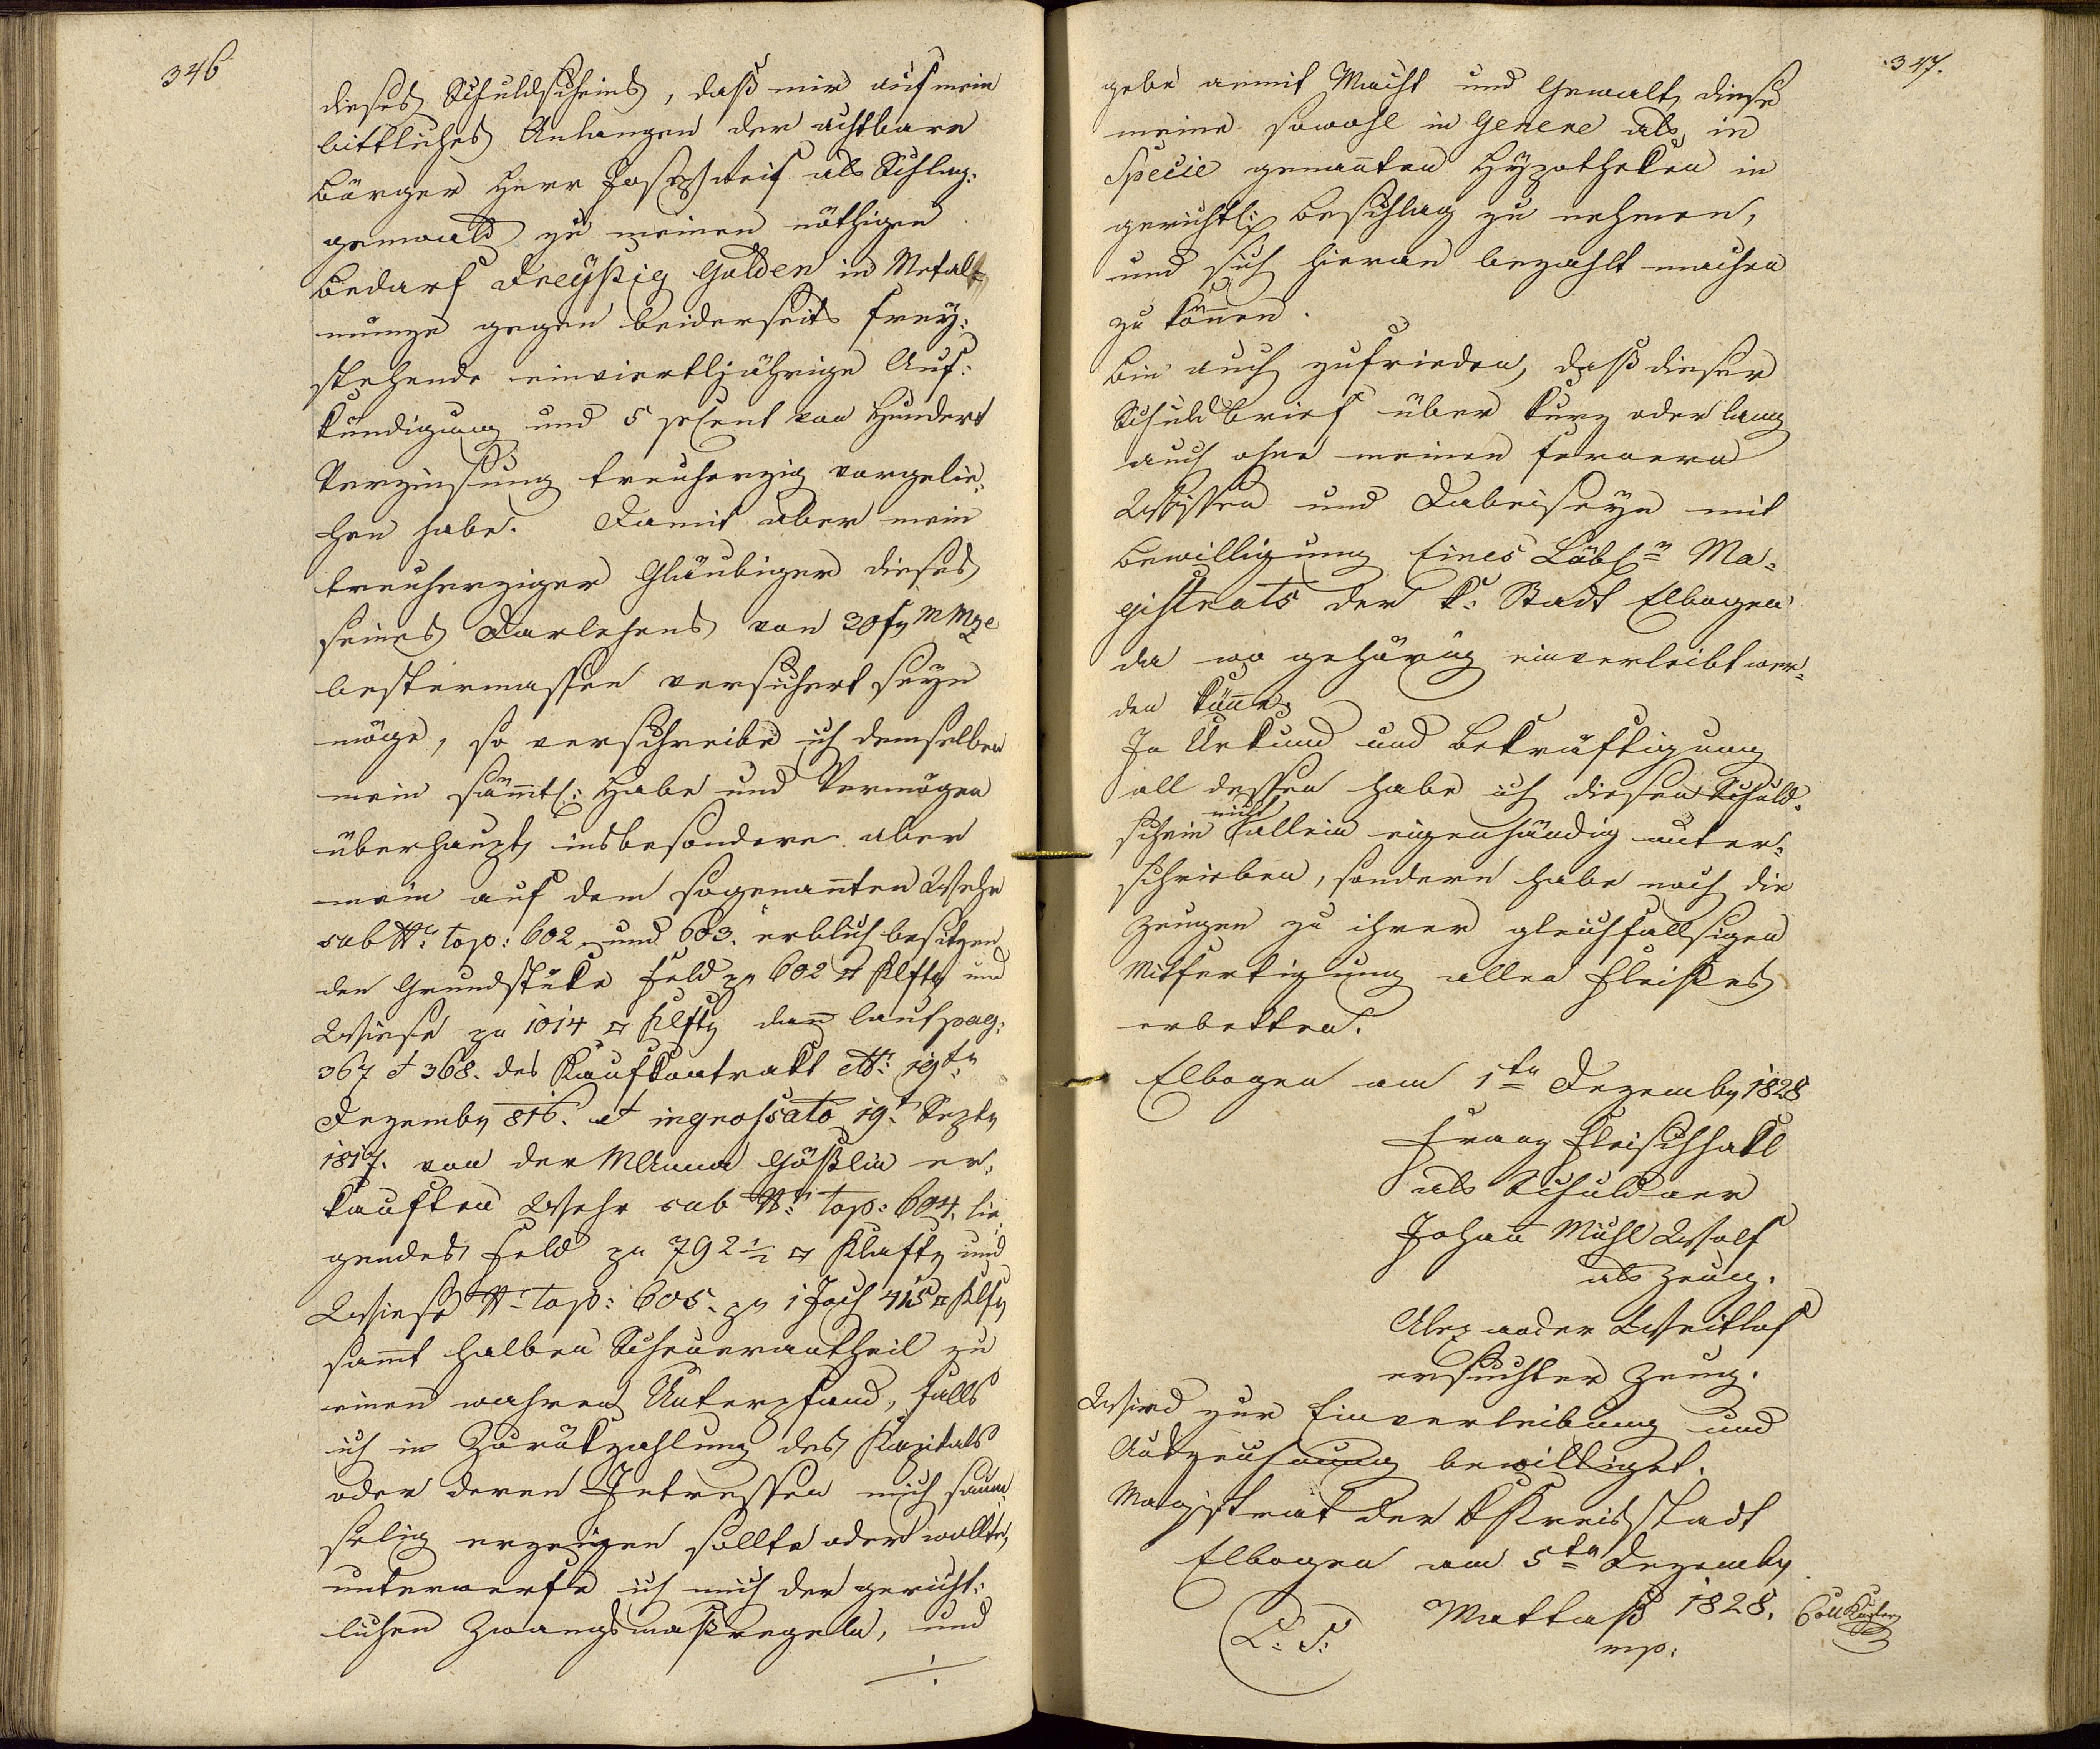 346
dieses Schuldscheins, daß mir auf mein
bittliches Anlangen der achtbare
Bürger Herr Joseph als Schlag:
gewald zu meinen nöthigen
Bedarf Dreyßig Gulden in Metall
münze gegen beiderseits frey:
stehende einvierteljährige Auf:
kündigung und 5 pCent von Hundert
Verzinsung treuherzig vorgelie:
hen habe. Damit aber mein
treuherziger Gläubiger dieses
seines Darlehens von 30 f MMze
bestermassen versichert seyn
möge, so verschreibe ich demselben
mein sämtl: Habe und Vermögen
überhaupt, insbesondere aber
mein auf dem sogenannten Wehr
sub Nr. top: 602 und 603. erblich besitzen
den Grundstüke Feld zu 602 □ Klftr und
Wiese zu 1014 □ Klftr dann laut pag:
367 et 368. des Kaufkontrakt dto: 19tn
Dezember 816. et ingrossato 19t Septr
1817. von der MAnna Gößlin er:
kauften Wehr sub Nr. top: 604. lie:
gendes Feld zu 792 1/2 □ Klafter und
Wiese Nr. top: 605. zu 1 Joch 415 □ Klftr
samt halben Scheuerantheil zu
einen wahren Unterpfand, falls
ich in Zurükzahlung des Kapitals
oder deren Intressen mich saum
selig erzeigen sollte oder wollte,
unterwerfe ich mich der gericht:
lichen Zwangsmaßregeln, und
./.
347.
gebe anmit Macht und Gewalt, diese
meine sowohl in Genere als in
Specie genannten Hypotheken in
gerichtl: Beschlag zu nehmen,
und sich hieran bezahlt machen
zu können.
Bin auch zufrieden, daß dieser
Schuldbrief über kurz oder lang
auch ohne meinen fernern
Wissen und Dabeiseyn mit
Bewilligung Eines Löbln Ma:
gistrats der k: Stadt Elbogen
da wo gehörig einverleibt wer:
den könne.
In Urkund und Bekräftigung
all dessen habe ich diesen Schuld:
schein nicht allein eigenhändig unter:
schrieben, sondern habe noch die
Zeugen zu ihrer gleichfallsigen
Mitfertigung allen Fleißes
erbetten.
Elbogen am 1ten Dezember 1828
Franz Fleischhakl
als Schuldner
Johann Michl Wolf
als Zeug.
Alexander Weitlof
ersuchter Zeug.
Wird zur Einverleibung und
Aufzeichnung bewilliget.
Magistrat der k Kreisstadt
Elbogen am 5ten Dezember
1828.
L: S:
Mattaß
mp:
Coll